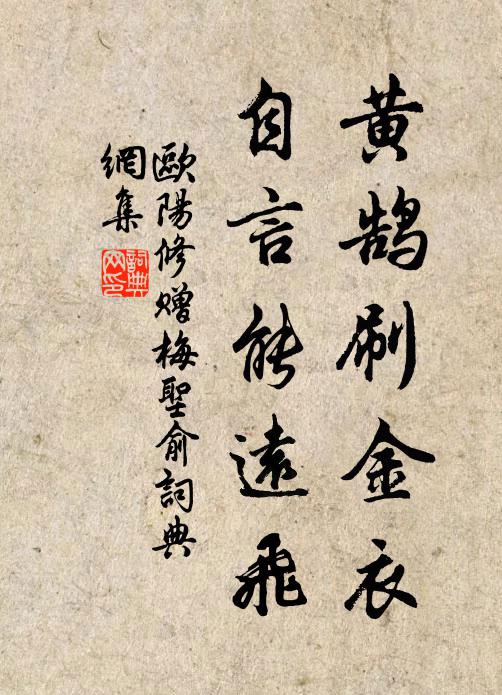 黄鹄刷金衣
自言能遠飛
歐陽修贈梅聖俞詞典
網集
詞典
网印